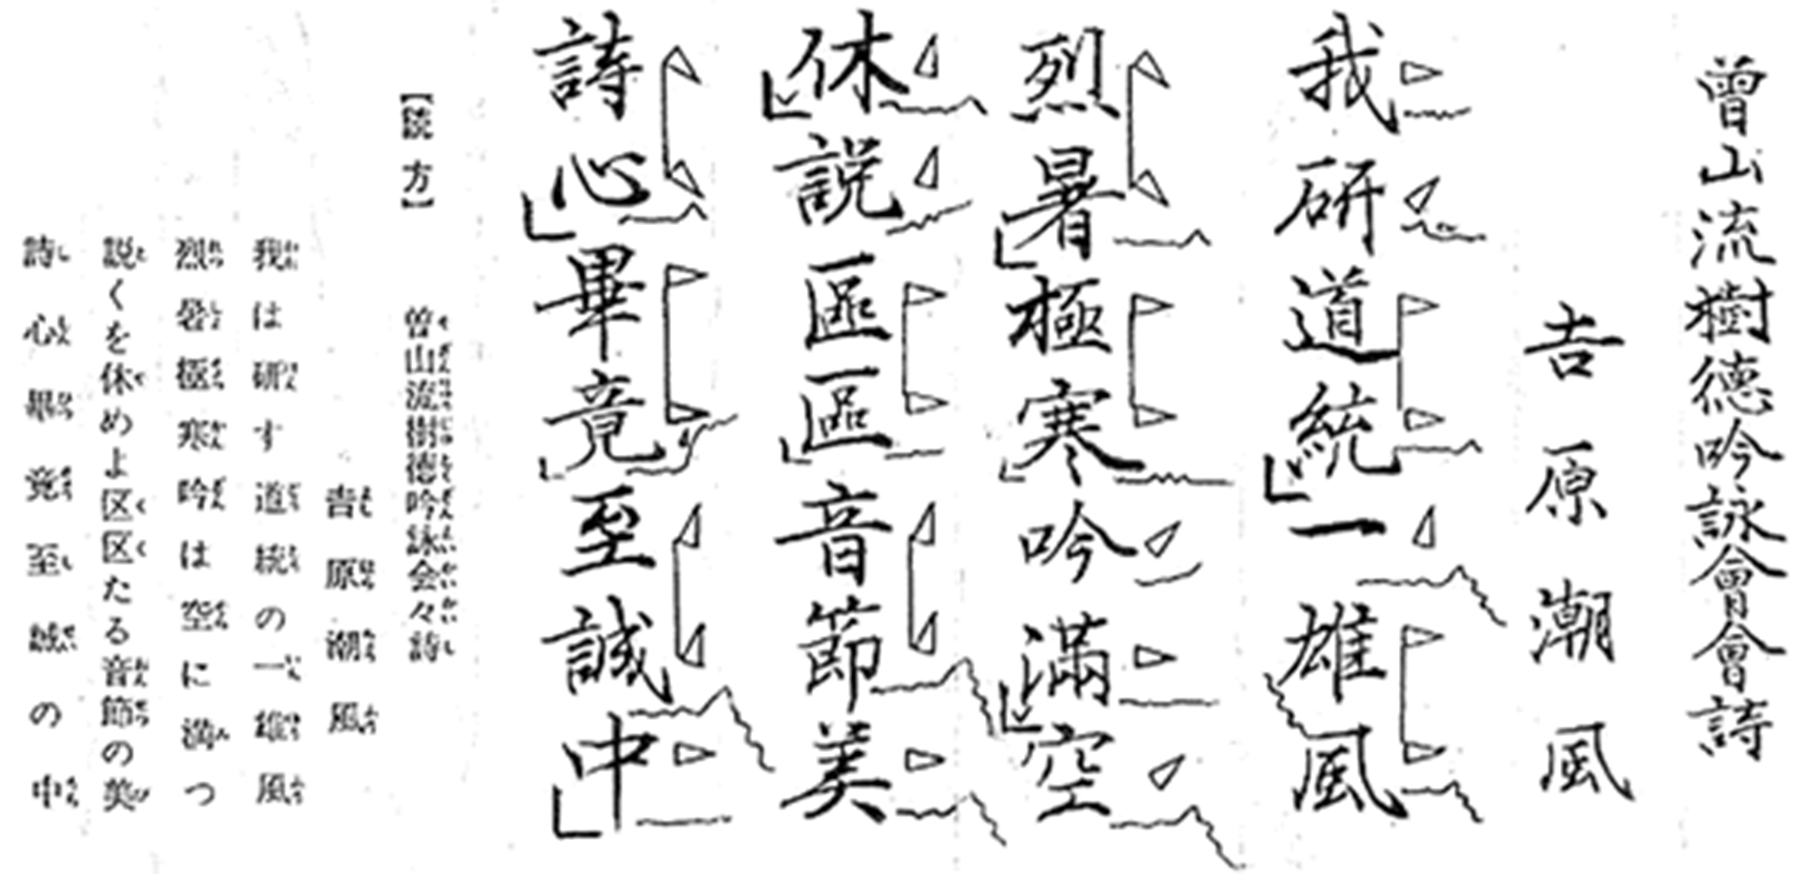 曾山流樹徳吟詠會會詩
吉原潮風
我研道統一雄風
烈暑極寒吟滿空
休説區區音節美
詩心畢竟至誠中
【読方】
曽山流樹徳吟詠会々詩
吉原潮風
我は研す道統の一雄風
烈暑極寒吟は空に満つ
説くを休めよ区区たる音節の美
詩心畢竟至誠の中